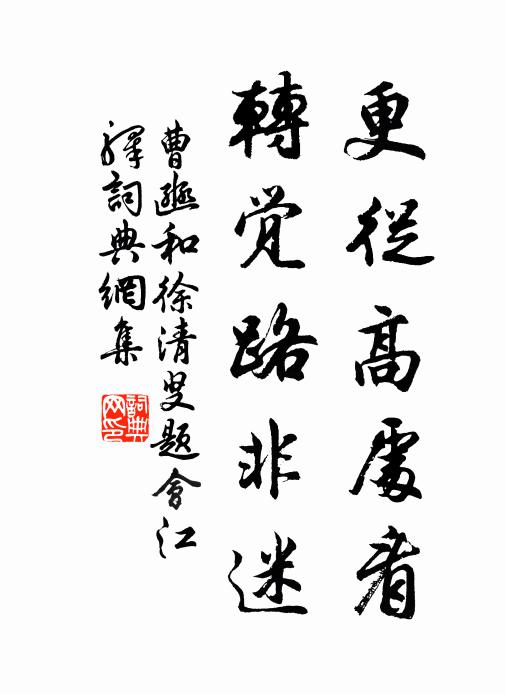 更從高處看
轉覺路非迷
曹豳和徐清叟題會江
驛詞典網集
詞典
网印